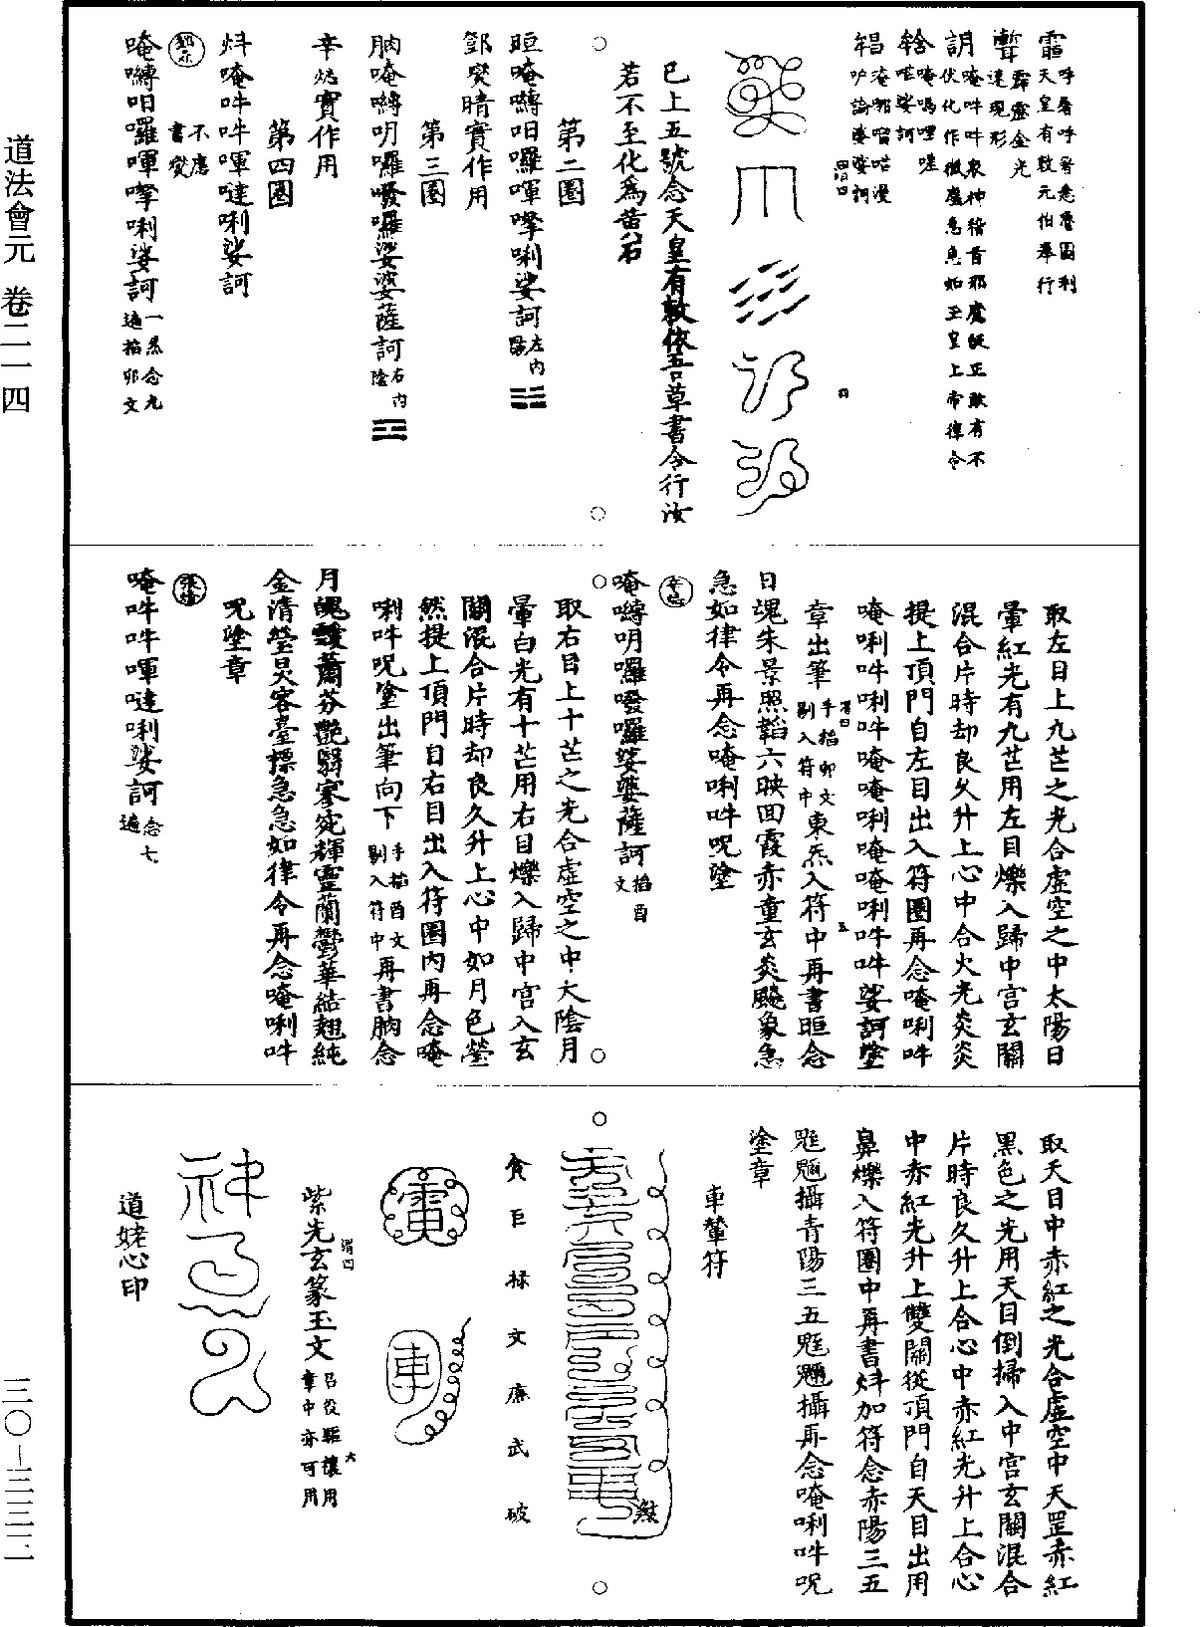 道法會元 卷二一四
三〇—三三二
呼嚕呼嚕悉魯圖利
天皇有敕元伯奉行
霹靂金光
速現形
唵吽吽衆神稽首邪魔皈正敢有不
伏化作微塵急急如玉皇上帝律令
唵嗎哩
娑訶
已上五號念天皇有敕依吾草書令行汝
若不至化為黃石
第二圈
晅唵嚩呬囉喗㘑唎娑訶左內陽☲
鄧燮晴實作用
第三圈
朒唵嚩明囉發囉娑婆薩訶右內陰☵
辛 實作用
第四圈
炓唵吽吽喗噠唎娑訶
不應
書燮
唵嚩呬囉喗㘑唎娑訶一炁念九
遍掐卯文
取左目上九芒之光合虛空之中太陽日
暈紅光有九芒用左目爍入歸中宮玄關
混合片時却良久升上心中合火光炎炎
提上頂門自左目出入符圈再念唵唎吽
唵唎吽唎吽唵唵唎唵唵唎吽吽娑訶塗
章出筆手掐卯文
剔入符中東炁入符中再書晅念
日魂朱景照韜六映回霞赤童玄炎飈象急
急如律令再念唵唎吽呪塗
唵嚩明囉發囉娑婆薩訶掐酉
文
取右目上十芒之光合虛空之中太陰月
暈白光有十芒用右目爍入歸中宮入玄
關混合片時却良久升上心中如月色瑩
然提上頂門自右目出入符圈內再念唵
唎吽呪塗出筆向下手掐酉文
剔入符中再書朒念
月魄曖蕭芬艷翳寥宛輝靈蘭鬱華結翹純
金清瑩炅容臺標急急如律令再念唵唎吽
呪塗章
唵吽吽喗噠唎娑訶念七
遍
取天目中赤紅之光合虛空中天罡赤紅
黑色之光用天目倒掃入中宮玄關混合
片時良久升上合心中赤紅光升上合心
中赤紅光升上雙關從頂門自天目出用
鼻爍入符圈中再書炓加符念赤陽三五
魁魓攝青陽三五魁魓攝再念唵唎吽呪
塗章
車輦符
貪巨祿文廉武破
紫光玄篆玉文召役驅禳用
章中亦可用
道姥心印